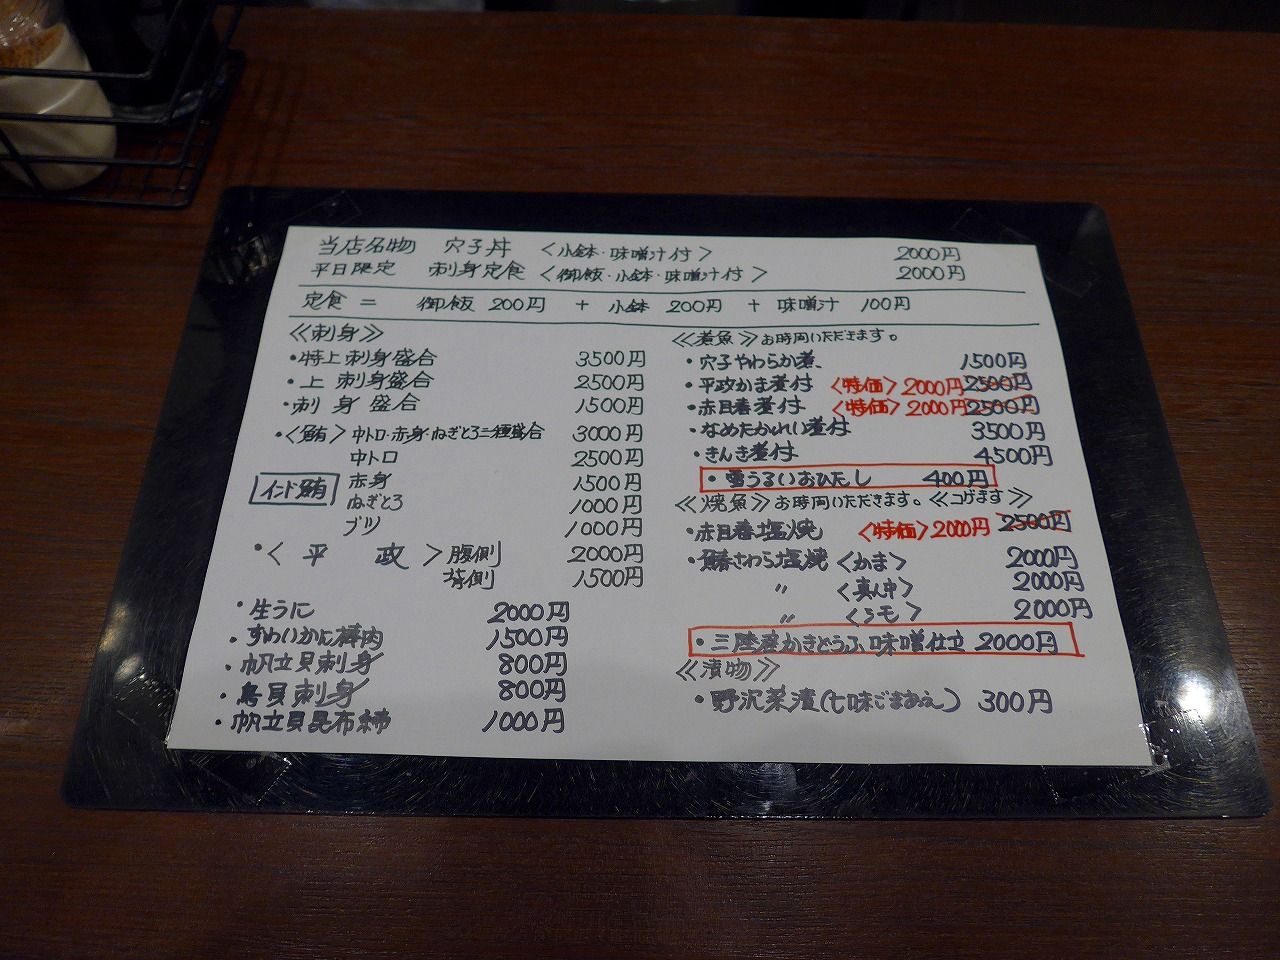 当店名物 穴子丼 <小鉢・味噌汁付> 2000円
平日限定 刺身定食 <御飯・小鉢・味噌汁付> 2000円
定食 = 御飯 200円 + 小鉢 200円 + 味噌汁 100円
≪刺身≫
・特上刺身盛合 3500円
・上 刺身盛合 2500円
・刺 身 盛合 1500円
・<鮪> 中トロ・赤身・ねぎとろ三種盛合 3000円
中トロ 2500円
インド鮪 赤身 1500円
ねぎとろ 1000円
ブツ 1000円
・< 平 政 > 腹側 2000円
背側 1500円
・生うに 2000円
・ずわいかに棒肉 1500円
・帆立貝刺身 800円
・鳥貝刺身 800円
・帆立貝昆布締 1000円
≪煮魚≫お時間いただきます。
・穴子やわらか煮 1500円
・平政かま煮付 <特価> 2000円 2500円
・赤目春煮付 <特価> 2000円 2500円
・なめたかれい煮付 3500円
・きんき煮付 4500円
・雪うるいおひたし 400円
≪焼魚≫お時間いただきます。≪コゲます≫
・赤目春塩焼 <特価> 2000円 2500円
・鰆さわら塩焼 <かま> 2000円
〃 <真ん中> 2000円
〃 <う毛> 2000円
・三陸産かきとうふ味噌仕立 2000円
≪漬物≫
・野沢菜漬(七味ごまあえ) 300円